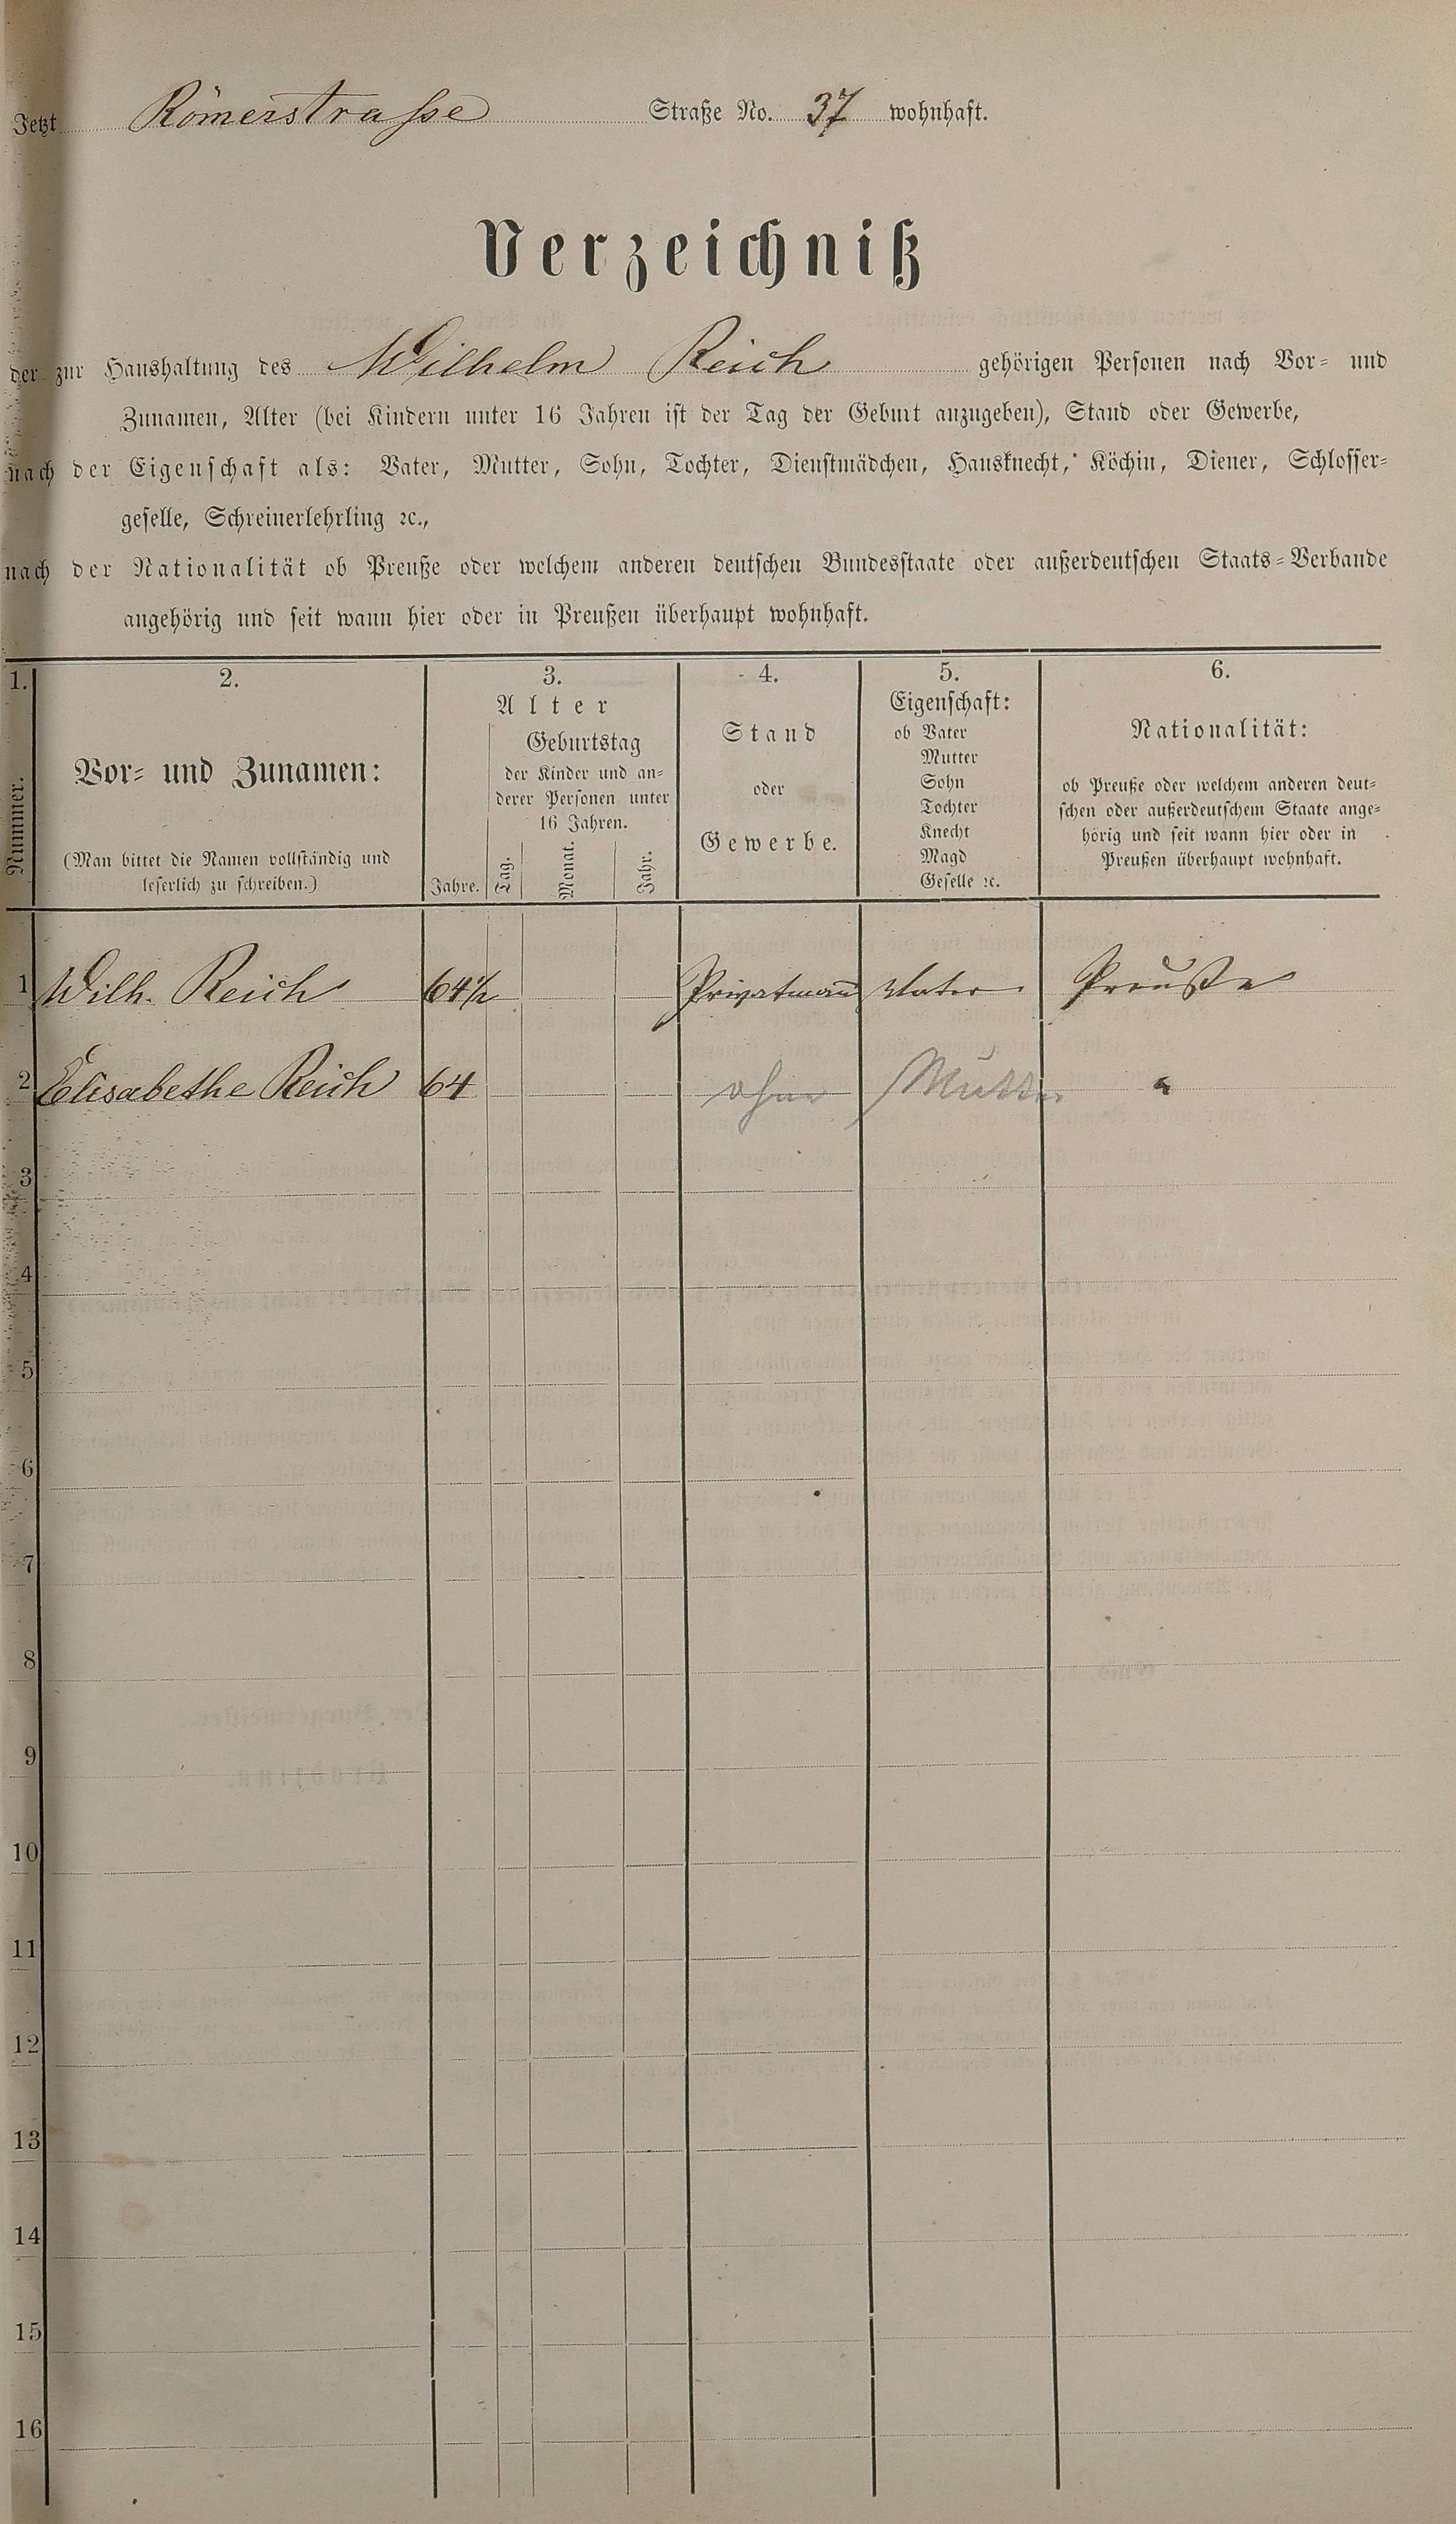 Jetzt Römerstrasse Straße No. 37 wohnhaft.
Verzeichniß
der zur Haushaltung des Wilhelm Reich gehörigen Personen nach Vor- und
Zunamen, Alter (bei Kindern unter 16 Jahren ist der Tag der Geburt anzugeben), Stand oder Gewerbe,
nach der Eigenschaft als: Vater, Mutter, Sohn, Tochter, Dienstmädchen, Hausknecht, Köchin, Diener, Schlosser-
geselle, Schreinerlehrling ꝛc.,
nach der Nationalität ob Preuße oder welchem anderen deutschen Bundesstaate oder außerdeutschen Staats-Verbande
angehörig und seit wann hier oder in Preußen überhaupt wohnhaft.
1.
Nummer.
2.
Vor- und Zunamen:
(Man bittet die Namen vollständig und
leserlich zu schreiben.)
3.
Alter
Jahre.
Geburtstag
der Kinder und an-
derer Personen unter
16 Jahren.
Tag.
Monat.
Jahr.
4.
Stand
oder
Gewerbe.
5.
Eigenschaft:
ob Vater
Mutter
Sohn
Tochter
Knecht
Magd
Geselle ꝛc.
6.
Nationalität:
ob Preuße oder welchem anderen deut-
schen oder außerdeutschem Staate ange-
hörig und seit wann hier oder in
Preußen überhaupt wohnhaft.
1 Wilh. Reich 64½ Privatmann Vater Preuße
2 Elisabethe Reich 64 ohne Mutter "
3
4
5
6
7
8
9
10
11
12
13
14
15
16